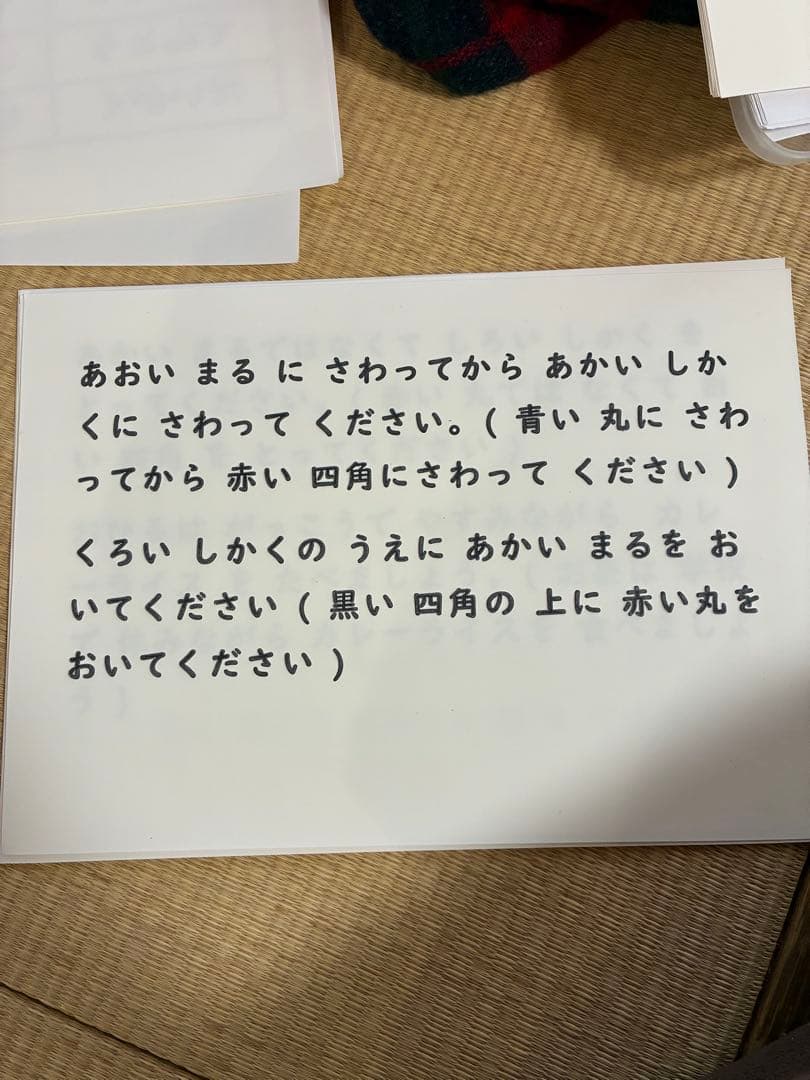 あおい まる に さわってから あかい しか
くに さわって ください。( 青い 丸に さわ
ってから 赤い 四角にさわって ください )
くろい しかくの うえに あかい まるを お
いてください ( 黒い 四角の 上に 赤い丸を
おいてください )